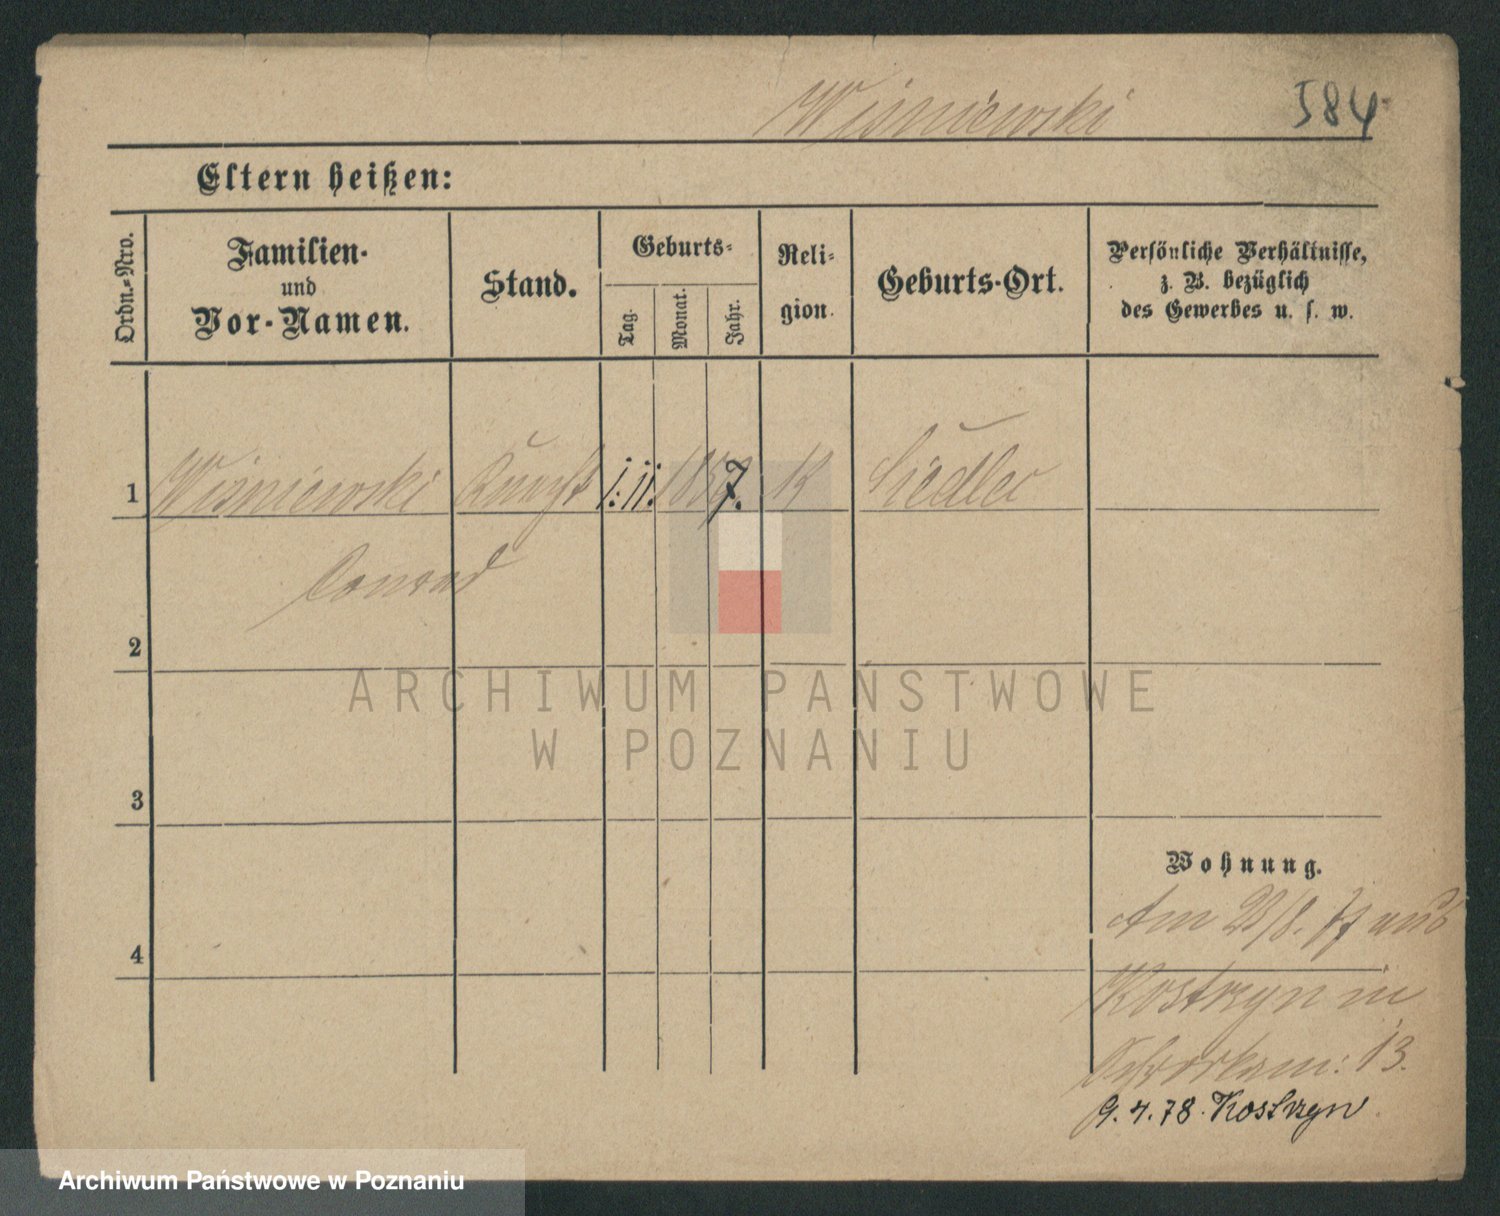 Wisniewski 584
Eltern heißen:
Ordn.-Nro.
Familien-
und
Vor-Namen.
Stand.
Geburts-
Tag.
Monat.
Jahr.
Reli-
gion.
Geburts-Ort.
Persönliche Verhältnisse,
z. B. bezüglich
des Gewerbes u. s. w.
1 Wisniewski 1. 11. 1857. K Siedlec
Conrad
2
3
4
Wohnung.
Am 23/8. 77 aus
Kostrzyn in
13.
9. 4. 78. Kostrzyn
ARCHIWUM PAŃSTWOWE
W POZNANIU
Archiwum Państwowe w Poznaniu